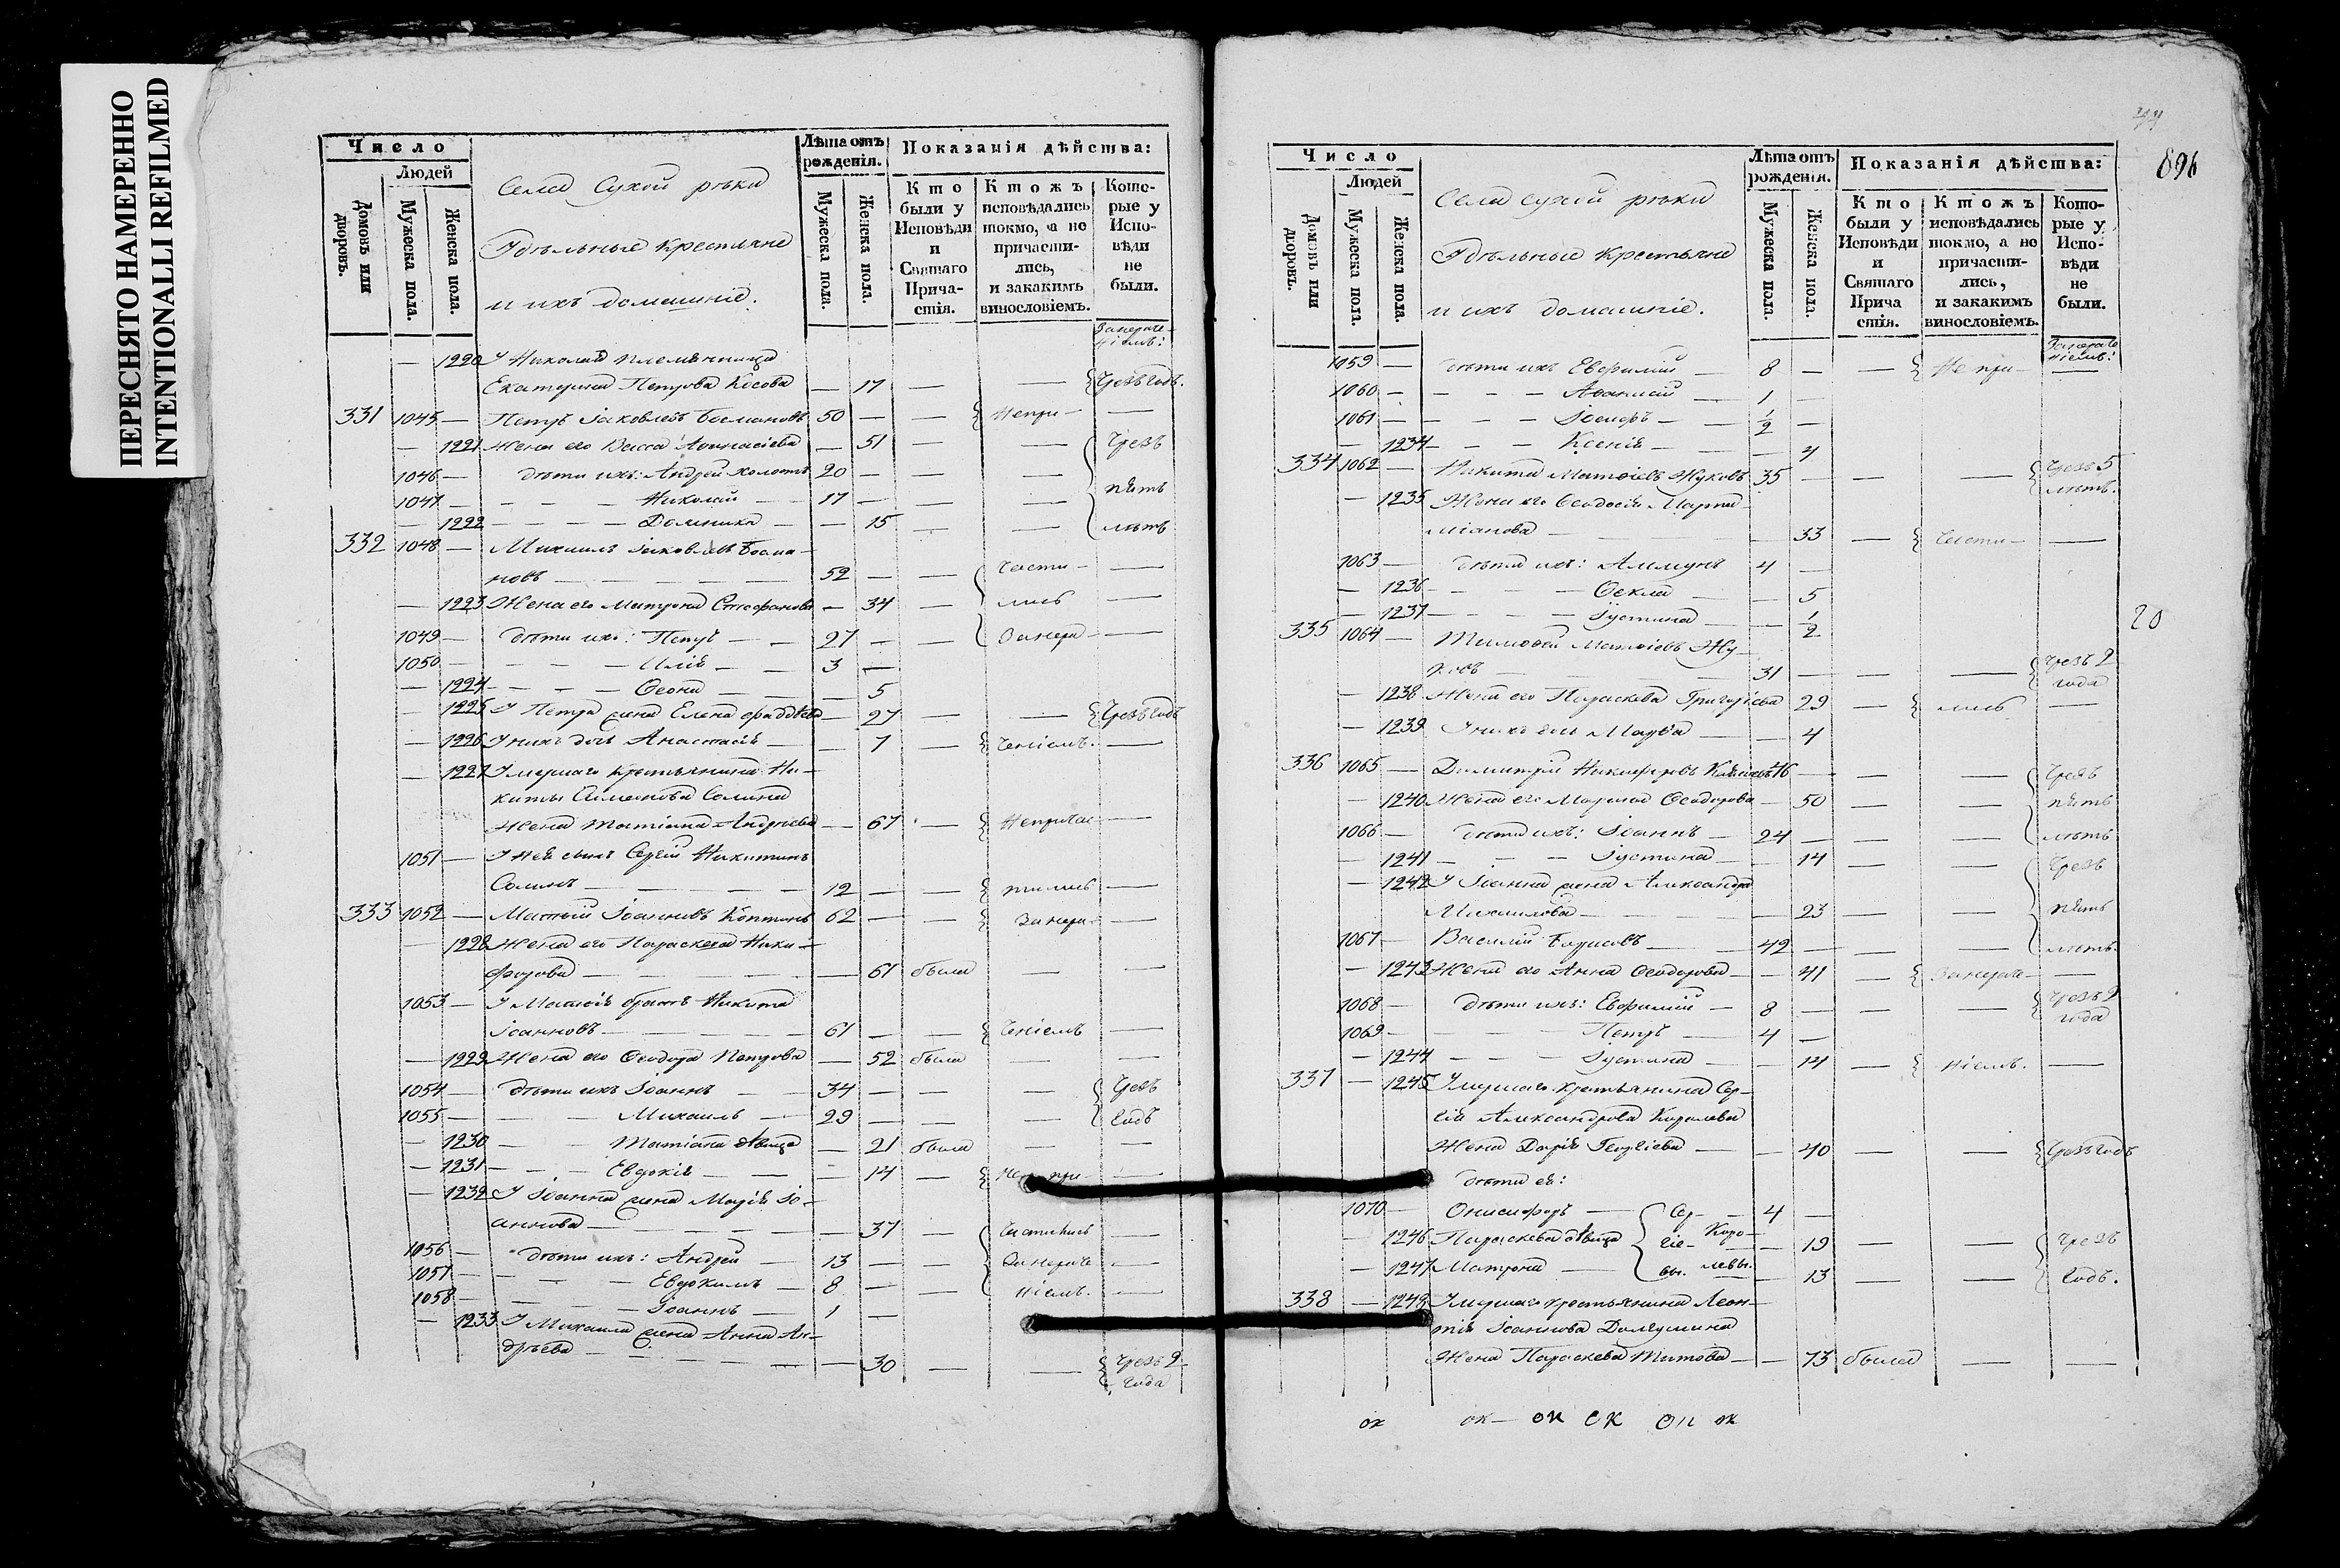 ПЕРЕСНЯТО НАМЕРЕННО
INTENTIONALLI REFILMED
Число
Людей
Домовъ или дворовъ.
Мужеска пола.
Женска пола.
Села Сухой рѣки
Удѣльные крестьяне
и ихъ домашніе.
Лѣта отъ рожденія.
Мужеска пола.
Женска пола.
Показанія дѣйства:
Кто были у Исповѣди и Святаго Причастія.
Ктожъ исповѣдались токмо, а не причастились, и закакимъ винословіемъ.
Которые у Исповѣди не были.
Занераченіемъ:
— 1220 У Николая племянница
Екатерина Петрова Косова — 17 — — Чрезъ годъ.
331 1045 — Петръ Іаковлевъ Босмановъ 50 — — Непри— —
— 1221 Жена его Васса Афанасіева — 51 — — Чрезъ
1046 — дѣти ихъ: Андрей холостъ 20 — — —
1047 — — — Николай 17 — — — пять
— 1222 — — — Домника — 15 — — лѣтъ
332 1048 — Михаилъ Іаковлевъ Босма—
новъ — — 52 — — части— —
— 1223 Жена его Матрона Стефанова — 34 — лись —
1049 — дѣти ихъ: Петръ — 27 — — Занера— —
1050 — — — Илія — 3 —
— 1224 — — — — 5
— 1225 У Петра жена Елена Фаддѣева — 27 — — Чрезъ годъ
— 1226 У нихъ дочь Анастасія — — 7 — ченіемъ. —
— 1227 Умершаго крестьянина Ни—
киты Симеонова Солина
Жена Татіана Андреева — 67 — Непричас— —
1051 — У ней сынъ Сергій Никитинъ
Солинъ — — 12 — — тились —
333 1052 — Матѳій Іоанновъ Коптинъ 62 — — Занера— —
— 1228 Жена его Параскева Ники—
форова — — 61 была — —
1053 — У Матѳія братъ Никита
Іоанновъ — — 61 — — ченіемъ —
— 1229 Жена его Ѳеодора Петрова — 52 была — —
1054 — дѣти ихъ Іоаннъ — 34 — — — Чрезъ
1055 — — — Михаилъ — 29 — — — годъ
— 1230 — — Татіана дѣвица — 21 была — —
— 1231 — — — Евдокія — — 14 — Непри— —
— 1232 У Іоанна жена Марія Іо—
аннова — — 37 — частились —
1056 — дѣти ихъ: Андрей — 13 — — Занераче —
1057 — — — Евдокимъ — 8 — — ніемъ. —
1058 — — — Іоаннъ — 1 —
— 1233 У Михаила жена Анна Ан—
дреева — — 30 — — Чрезъ 2
года
896
Число
Людей
Домовъ или дворовъ.
Мужеска пола.
Женска пола.
Села Сухой рѣки
Удѣльные крестьяне
и ихъ домашніе.
Лѣта отъ рожденія.
Мужеска пола.
Женска пола.
Показанія дѣйства:
Кто были у Исповѣди и Святаго Причастія.
Ктожъ исповѣдались токмо, а не причастились, и закакимъ винословіемъ.
Которые у Исповѣди не были.
Занераченіемъ:
1059 — дѣти ихъ Евфимій — 8 — — Непри— —
1060 — — — Аѳанасій — 1 —
1061 — — — Іосифъ — 1/2 —
— 1234 — — Ксенія — — 4
334 1062 — Никита Матѳіевъ Жуковъ 35 — — — Чрезъ 5
лѣтъ.
— 1235 Жена его Ѳеодосія Марти
міанова — — 33 — части— —
1063 — дѣти ихъ: 4 —
— 1236 — — Ѳекла — — 5
— 1237 — — Іустина — — 1/2
20
335 1064 — Тимоѳей Матѳіевъ Жу—
ковъ 31 — — — Чрезъ 2
года
— 1238 Жена его Параскева Григоріева 29 — лись —
— 1239 У нихъ дочь Марѳа — — 4
336 1065 — Димитрій Никифоровъ 46 — — — Чрезъ
— 1240 Жена его Марина Ѳеодорова — 50 — — пять
1066 — дѣти ихъ: Іоаннъ — 24 — — — лѣтъ
— 1241 — — Іустина — — 14 — — Чрезъ
— 1242 У Іоанна жена Александра
Михаилова — — 23 — — пять
1067 — Василій Борисовъ — 42 — — — лѣтъ.
— 1243 Жена его Анна Ѳеодорова — — 41 — Занераче— —
1068 — дѣти ихъ: Евфимій — 8 — — — Чрезъ 2
года
1069 — — — Петръ — 4 —
— 1244 — — Іустина — — 14 — ніемъ. —
337 — 1245 Умершаго крестьянина Сер—
гія Александрова Королева
Жена Дарія Георгіева — — 40 — — Чрезъ годъ
дѣти ея:
1070 — Онисифоръ — Сер— 4 —
— 1246 Параскева дѣвица гіе— Коро— — 19 — — Чрезъ
— 1247 Матрона — вы. левы. — 13 — — годъ.
338 — 1248 Умершаго крестьянина Леон—
тія Іоаннова
Жена Параскева Титова — — 73 была — —